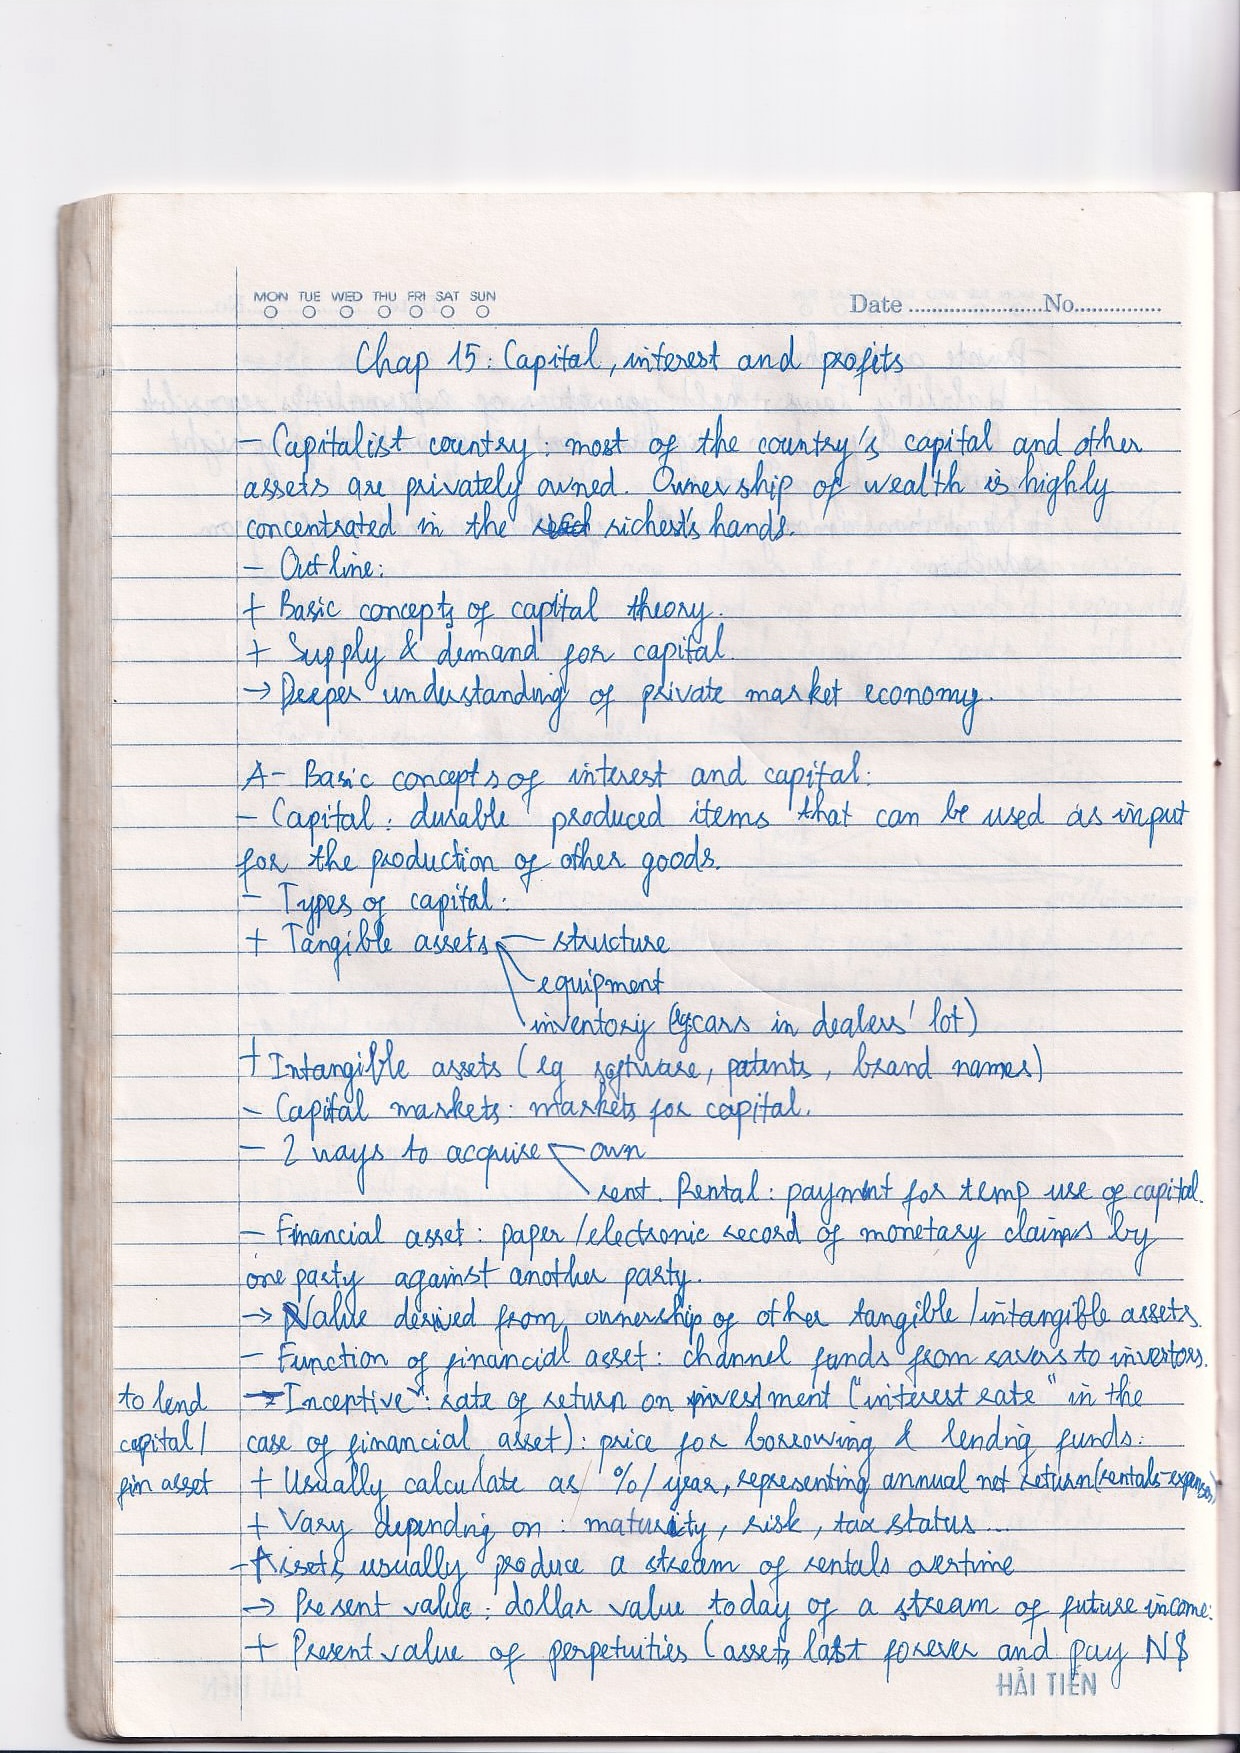 MON TUE WED THU FRI SAT SUN
Date ........................No................
Chap 15: Capital, interest and profits
- Capitalist country: most of the country's capital and other
assets are privately owned. Ownership of wealth is highly
concentrated in the richest's hands.
- Outline:
+ Basic concepts of capital theory.
+ Supply & demand for capital.
→ Deeper understanding of private market economy.
A- Basic concepts of interest and capital:
- Capital: durable produced items that can be used as input
for the production of other goods.
- Types of capital:
+ Tangible assets - structure
equipment
inventory (eg cars in dealers' lot)
+ Intangible assets (eg software, patents, brand names)
- Capital markets: markets for capital.
- 2 ways to acquire - own
rent. Rental: payment for temp use of capital.
- Financial asset: paper/electronic record of monetary claims by
one party against another party.
→ Value derived from ownership of other tangible/intangible assets.
- Function of financial asset: channel funds from savers to investors.
to lend
capital/
fin asset
→ Incentive ˅: rate of return on investment ("interest rate" in the
case of financial asset): price for borrowing & lending funds:
+ Usually calculate as %/year, representing annual net return (rentals-expenses)
+ Vary depending on: maturity, risk, tax status...
- Assets usually produce a stream of rentals overtime
→ Present value: dollar value today of a stream of future income:
+ Present value of perpetuities (assets last forever and pay N$
HẢI TIẾN